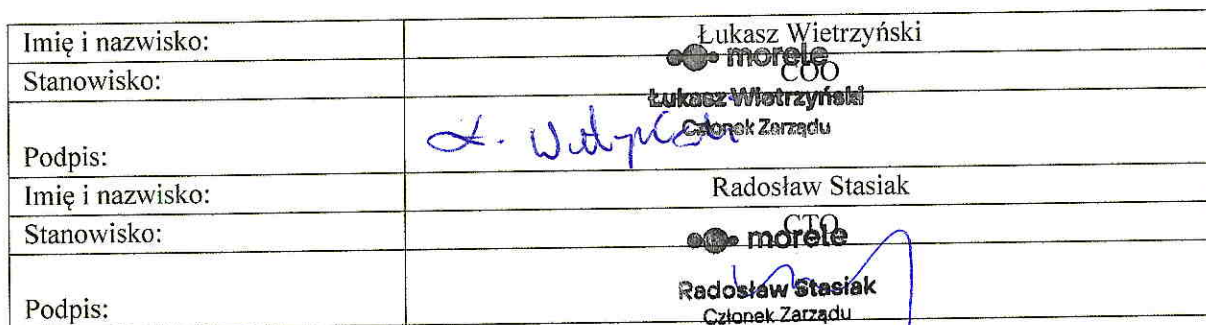 Imię i nazwisko: Łukasz Wietrzyński
morele
Stanowisko: COO
Łukasz Wietrzyński
Członek Zarządu
Podpis: Ł. Wietrzyński
Imię i nazwisko: Radosław Stasiak
Stanowisko: CTO
morele
Radosław Stasiak
Podpis:
Członek Zarządu